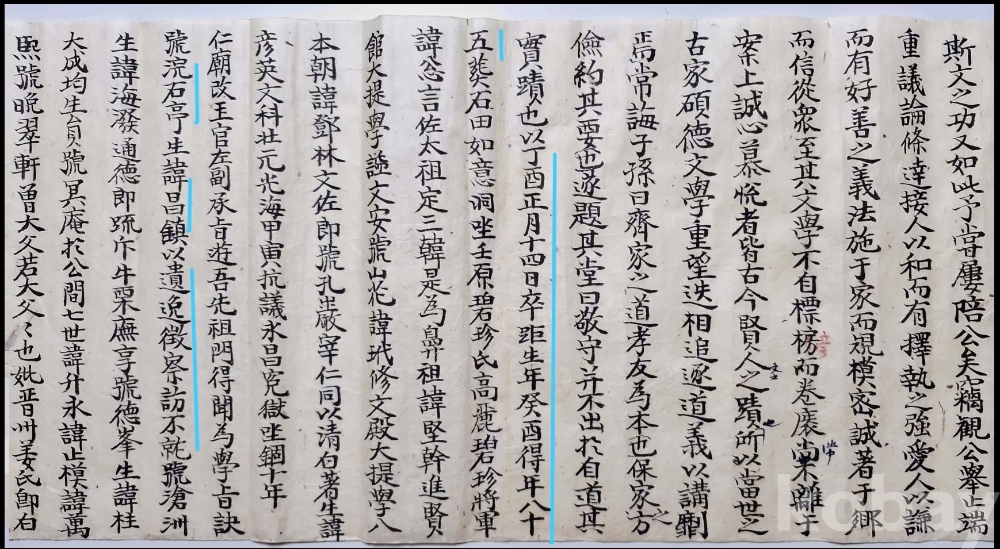 斯文之功又如此予嘗屢陪公矣竊觀公舉止端
重議論條達接人以和而有擇執之強愛人以謙
而有好善之義法施于家而規模密誠著于鄉
而信從衆至其父學不自標榜而卷褁常不離于
案上誠心慕悅者皆古今賢人之蹟所以當世之
古家碩德文學重望迭相追逐道義以講劘
焉常誨子孫曰齊家之道孝友爲本也保家之方
儉約其要也遂題其堂曰敬守并不出於自道其
實蹟也以丁酉正月十四日卒距生年癸酉得年八十
五葬石田如意洞坐壬原碧珍氏高麗碧珍將軍
諱忩言佐太祖定三韓是爲鼻祖諱堅幹進賢
館大提學謚文安號山花諱玳修文殿大提學入
本朝諱鄧林文佐郎號孔巖宰仁同以清白著生諱
彦英文科壯元光海甲寅抗議永昌寃獄坐錮十年
仁廟改玉官左副承旨遊吾先祖門得聞爲學旨訣
號浣石亭生諱昌鎮以遺逸徵察訪不就號滄洲
生諱海潑通德郎疏斥牛栗廡享號德峯生諱柱
大成均生員號冥庵於公間七世諱升永諱止模諱萬
煕號晩翠軒曾大父若大父父也妣晋州姜氏郎白
kobay